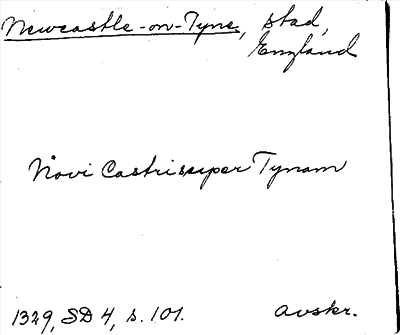 Newcastle-on-Tyne, stad,
England
Novi Castri super Tynam
1329, SD 4, s. 101. avskr.